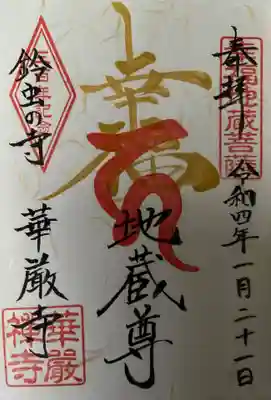 奉拝
令和四年一月二十一日
幸福
地蔵尊
鈴虫の寺
華厳寺
華嚴禅寺